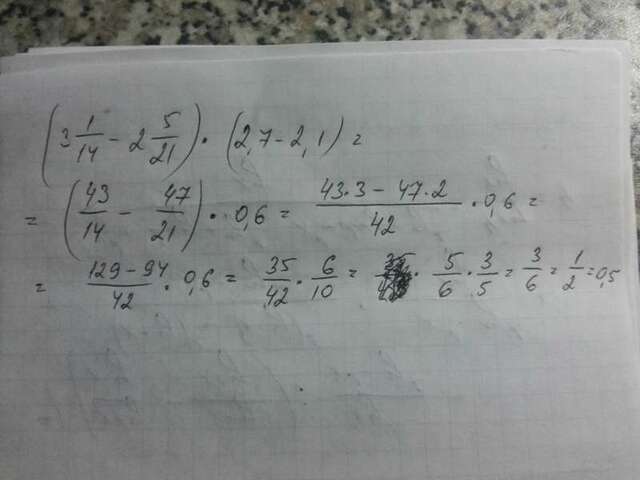 (3 1/14 - 2 5/21) · (2,7 - 2,1) =
= (43/14 - 47/21) · 0,6 = (43·3 - 47·2)/42 · 0,6 =
= (129 - 94)/42 · 0,6 = 35/42 · 6/10 = 5/6 · 3/5 = 3/6 = 1/2 = 0,5